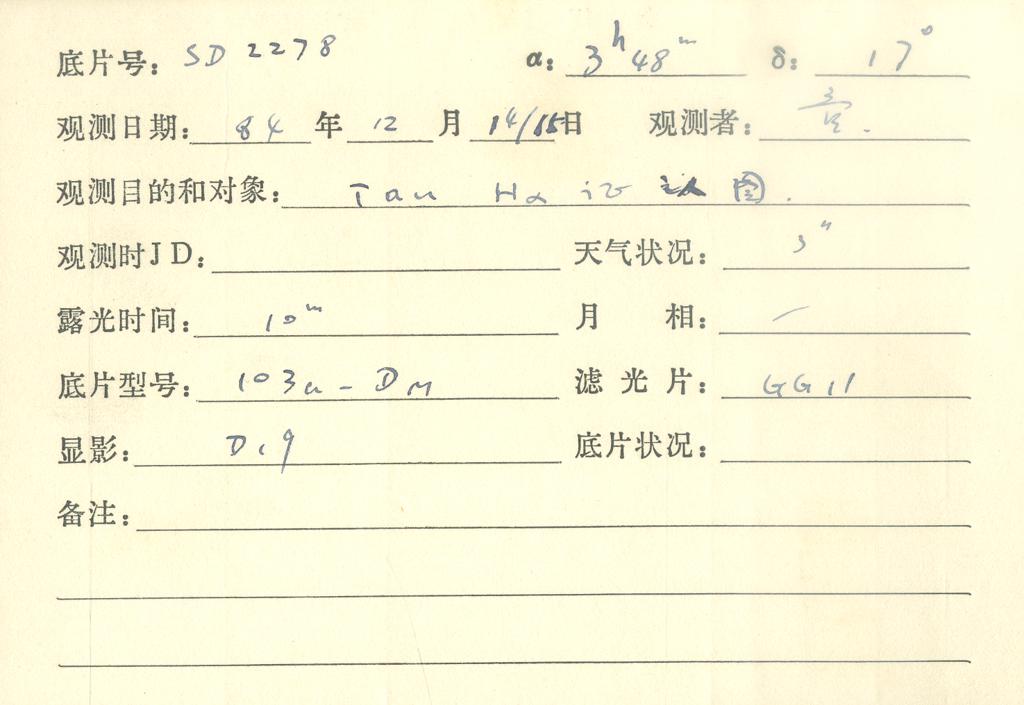 底片号: SD 2278 α: 3h 48m δ: 17°
观测日期: 84 年 12 月 14/15日 观测者:
观测目的和对象: Tau Hα 证认图.
观测时JD: 天气状况: 3"
露光时间: 10m 月 相: —
底片型号: 103a-DM 滤光片: GG11
显影: D19 底片状况:
备注: